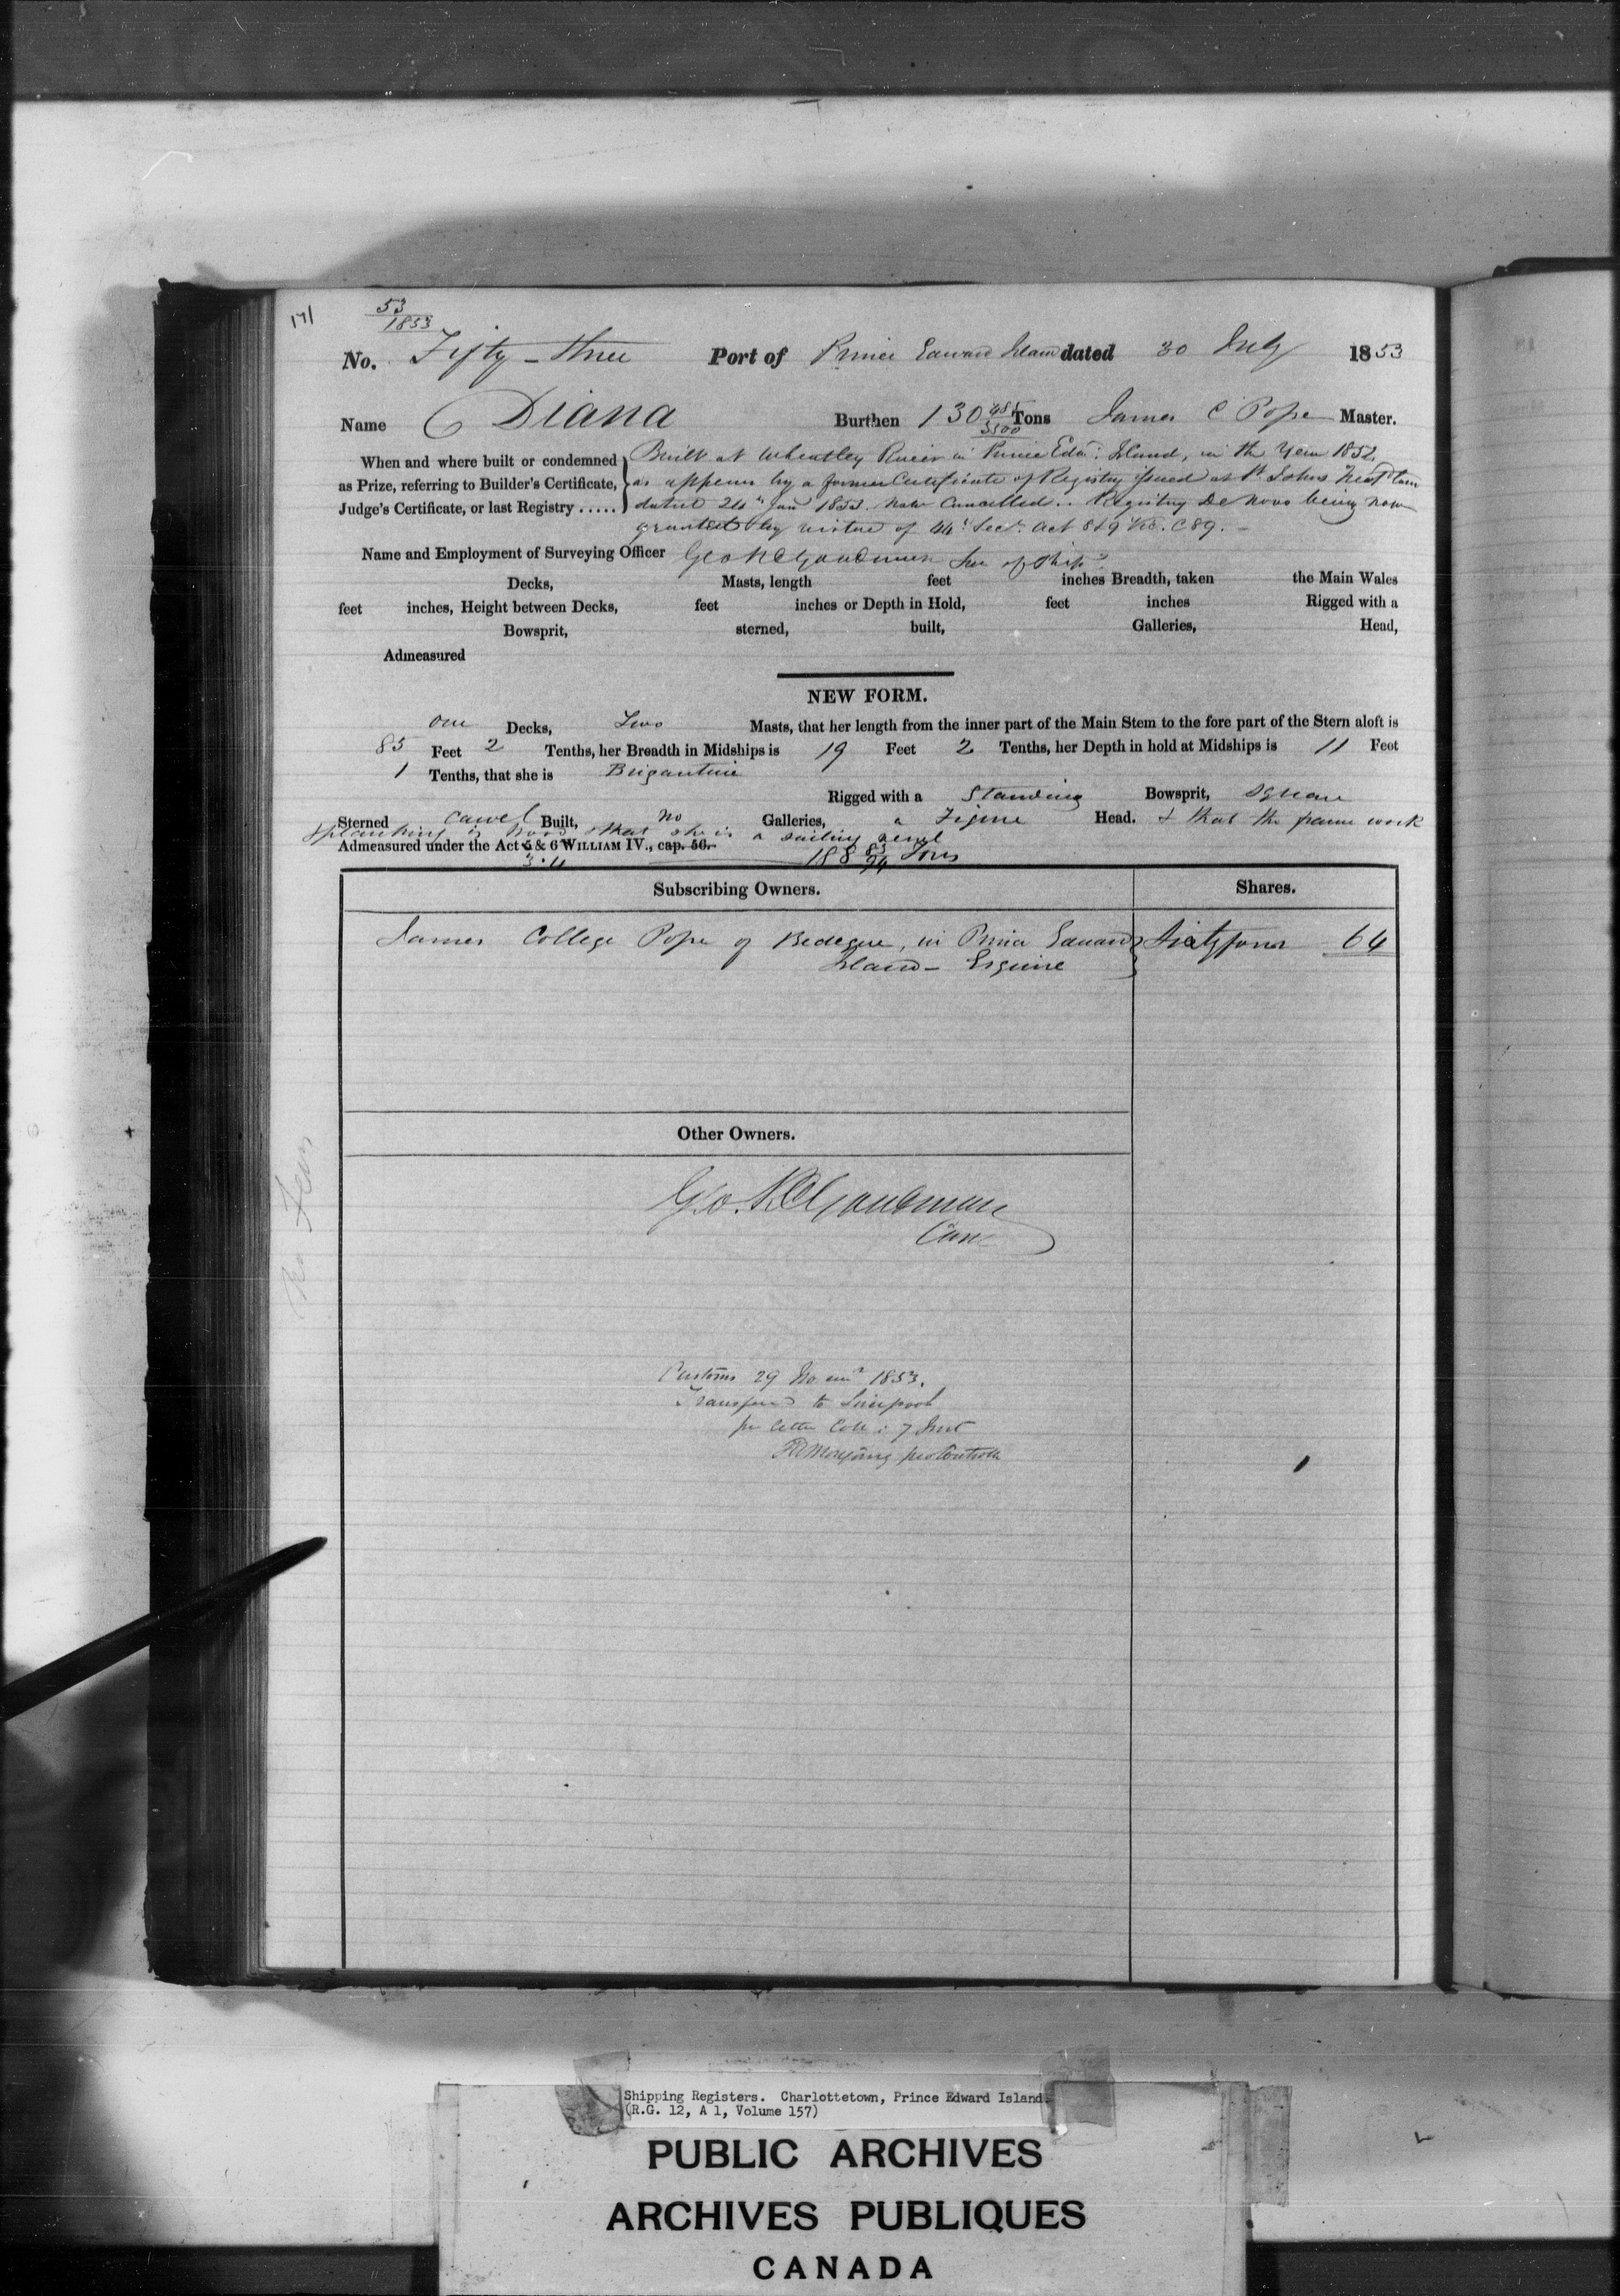 171
53
1853
No. Fifty-three Port of Prince Edward Island dated 30 July 1853
Name Diana Burthen 130 485/3500 Tons James C Pope Master.
When and where built or condemned as Prize, referring to Builder's Certificate, Judge's Certificate, or last Registry.....
Built at Wheatley River in Prince Edwd. Island, in the Year 1852,
as appears by a former Certificate of Registry issued at St Johns
dated 24th Jan 1853. now Cancelled.. Registry De Novo being now
granted by virtue of 44: Sec: Act 8 & 9 Vic. C 89. -
Name and Employment of Surveying Officer Geo R Goodman Sur of Ships
Decks, Masts, length feet inches Breadth, taken the Main Wales
feet inches, Height between Decks, feet inches or Depth in Hold, feet inches Rigged with a
Bowsprit, sterned, built, Galleries, Head,
Admeasured
NEW FORM.
one Decks, Two Masts, that her length from the inner part of the Main Stem to the fore part of the Stern aloft is
85 Feet 2 Tenths, her Breadth in Midships is 19 Feet 2 Tenths, her Depth in hold at Midships is 11 Feet
1 Tenths, that she is Brigantine
Rigged with a Standing Bowsprit, square
Sterned Carvel Built, no Galleries, a Figure Head. & that the frame work
& planking is wood & that she is a sailing vessel
Admeasured under the Act 5 & 6 WILLIAM IV., cap. 56.
3.4 188 83/94 Tons
Subscribing Owners. Shares.
James College Pope of Bedeque, in Prince Edward Sixty four 64
Island - Esquire
Other Owners.
Geo. R Goodman
Customs 29 1853.
Transferred to Liverpool
pr letter 7 Inst
pro
No Fees
Shipping Registers. Charlottetown, Prince Edward Island.
(R.G. 12, A 1, Volume 157)
PUBLIC ARCHIVES
ARCHIVES PUBLIQUES
CANADA